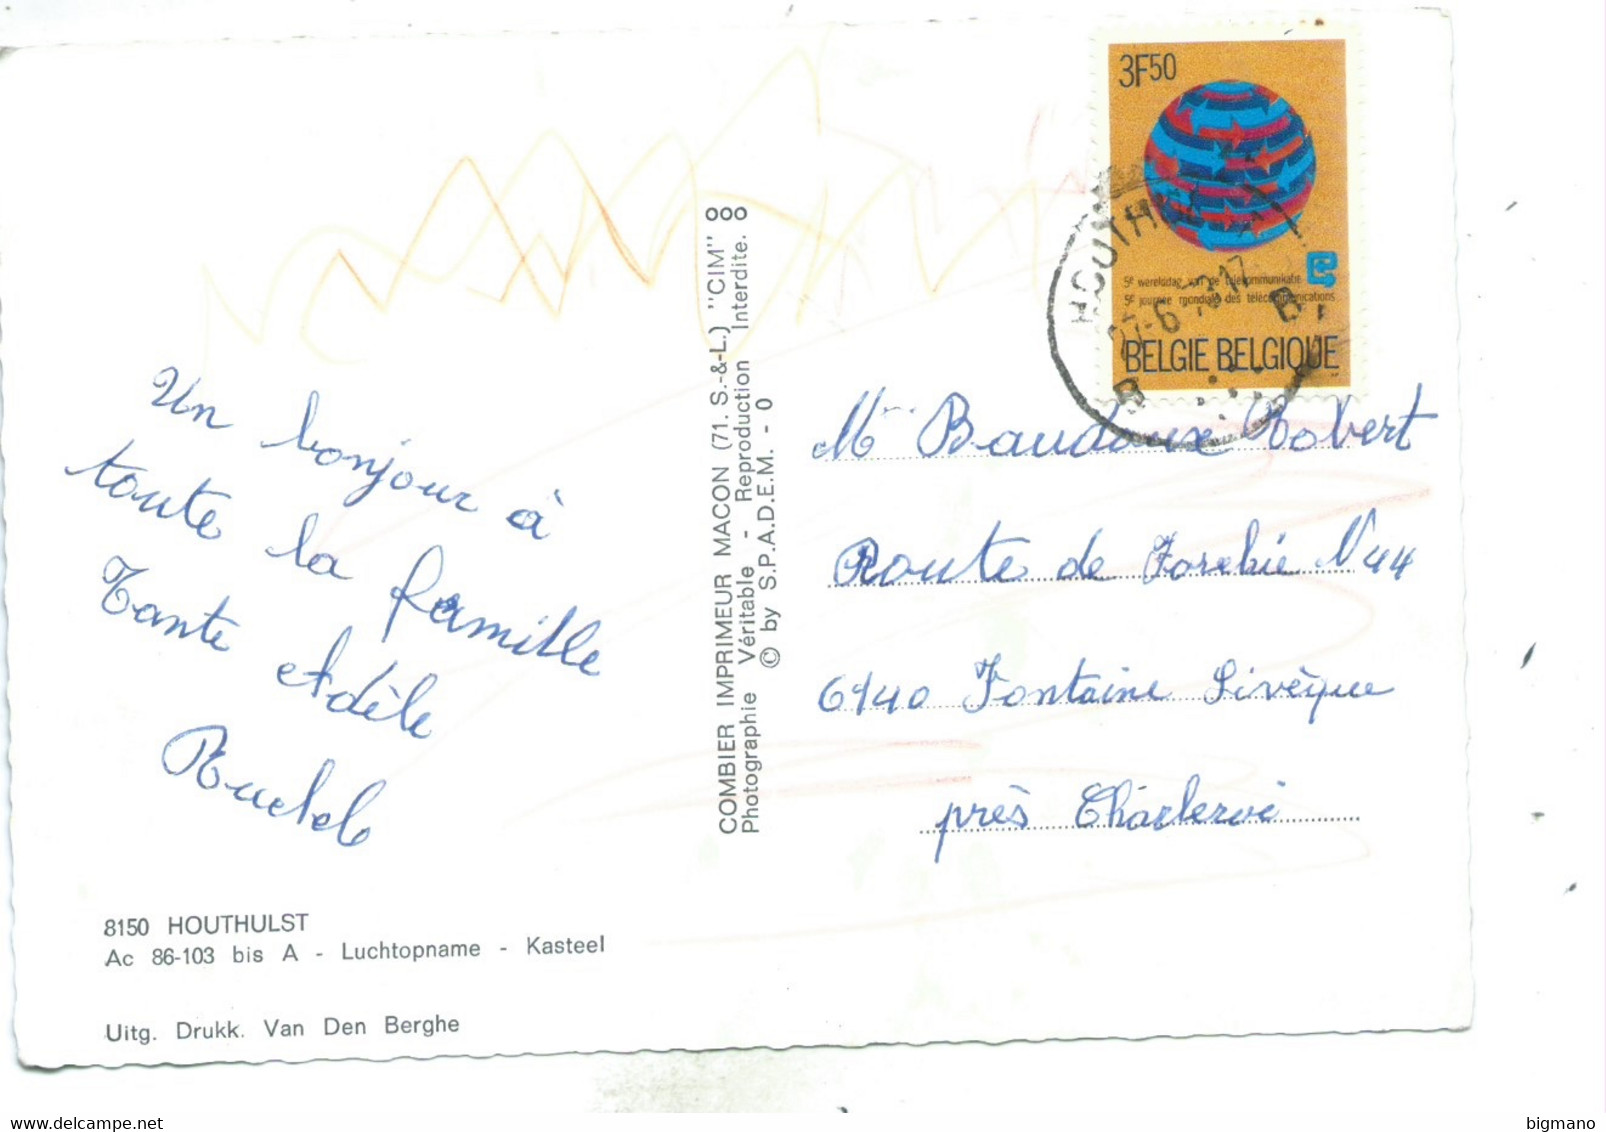 3F50
5e werelddag van de telecommunikatie
5e journée mondiale des télécommunications
BELGIE BELGIQUE
HOUTHULST
B B
Un bonjour à
toute la famille
Tante et Adèle
COMBIER IMPRIMEUR MACON (71. S.-&-L.) "CIM"
Photographie Véritable - Reproduction Interdite.
© by S.P.A.D.E.M. - 0
Mr Baudoux Robert
Route de Forchie N 44
6140 Fontaine Livèque
près Charleroi
8150 HOUTHULST
Ac 86-103 bis A - Luchtopname - Kasteel
Uitg. Drukk. Van Den Berghe
bigmano